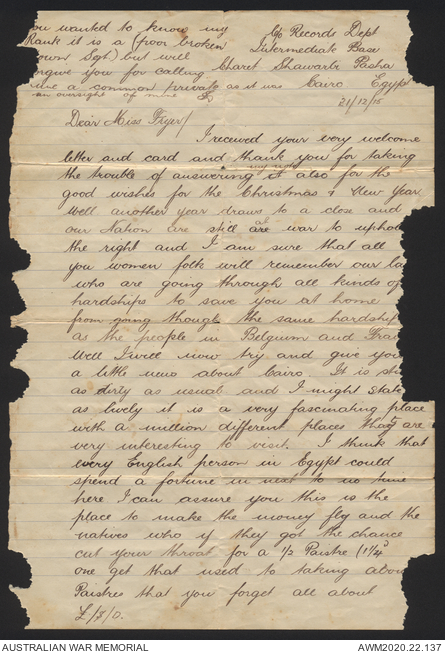 ou wanted to know my
Rank it is a (poor broken
down Sgt) but will
orgive you for calling
me a common private as it was
an oversight of mine
c/o Records Dept
Intermediate Base
Charet Shawarbi Pasha
Cairo Egypt
21/12/15
Dear Miss Fryer/
I received your very welcome
letter and card and thank you for taking
the trouble of answering it also for the
my night
good wishes for the Christmas & New Year
Well another year draws to a close and
our Nation are still at war to uphold
the right and I am sure that all
you women folk will remember our la
who are going through all kinds of
hardships to save you at home
from going though the same hardship
as the people in Belgium and Fra
Well I will now try and give you
a little news about Cairo. It is sti
as dirty as usual and I might state
as lively it is a very fascinating place
with a million different places that are
very interesting to visit. I think that
every English person in Egypt could
spend a fortune in next to no time
here I can assure you this is the
place to make the money fly and the
natives who if they got the chance
cut your throat for a 1/2 Piastre (1 1/4d
one get that used to taking abou
Piastres that you forget all about
£/s/d.
AUSTRALIAN WAR MEMORIAL
AWM2020.22.137